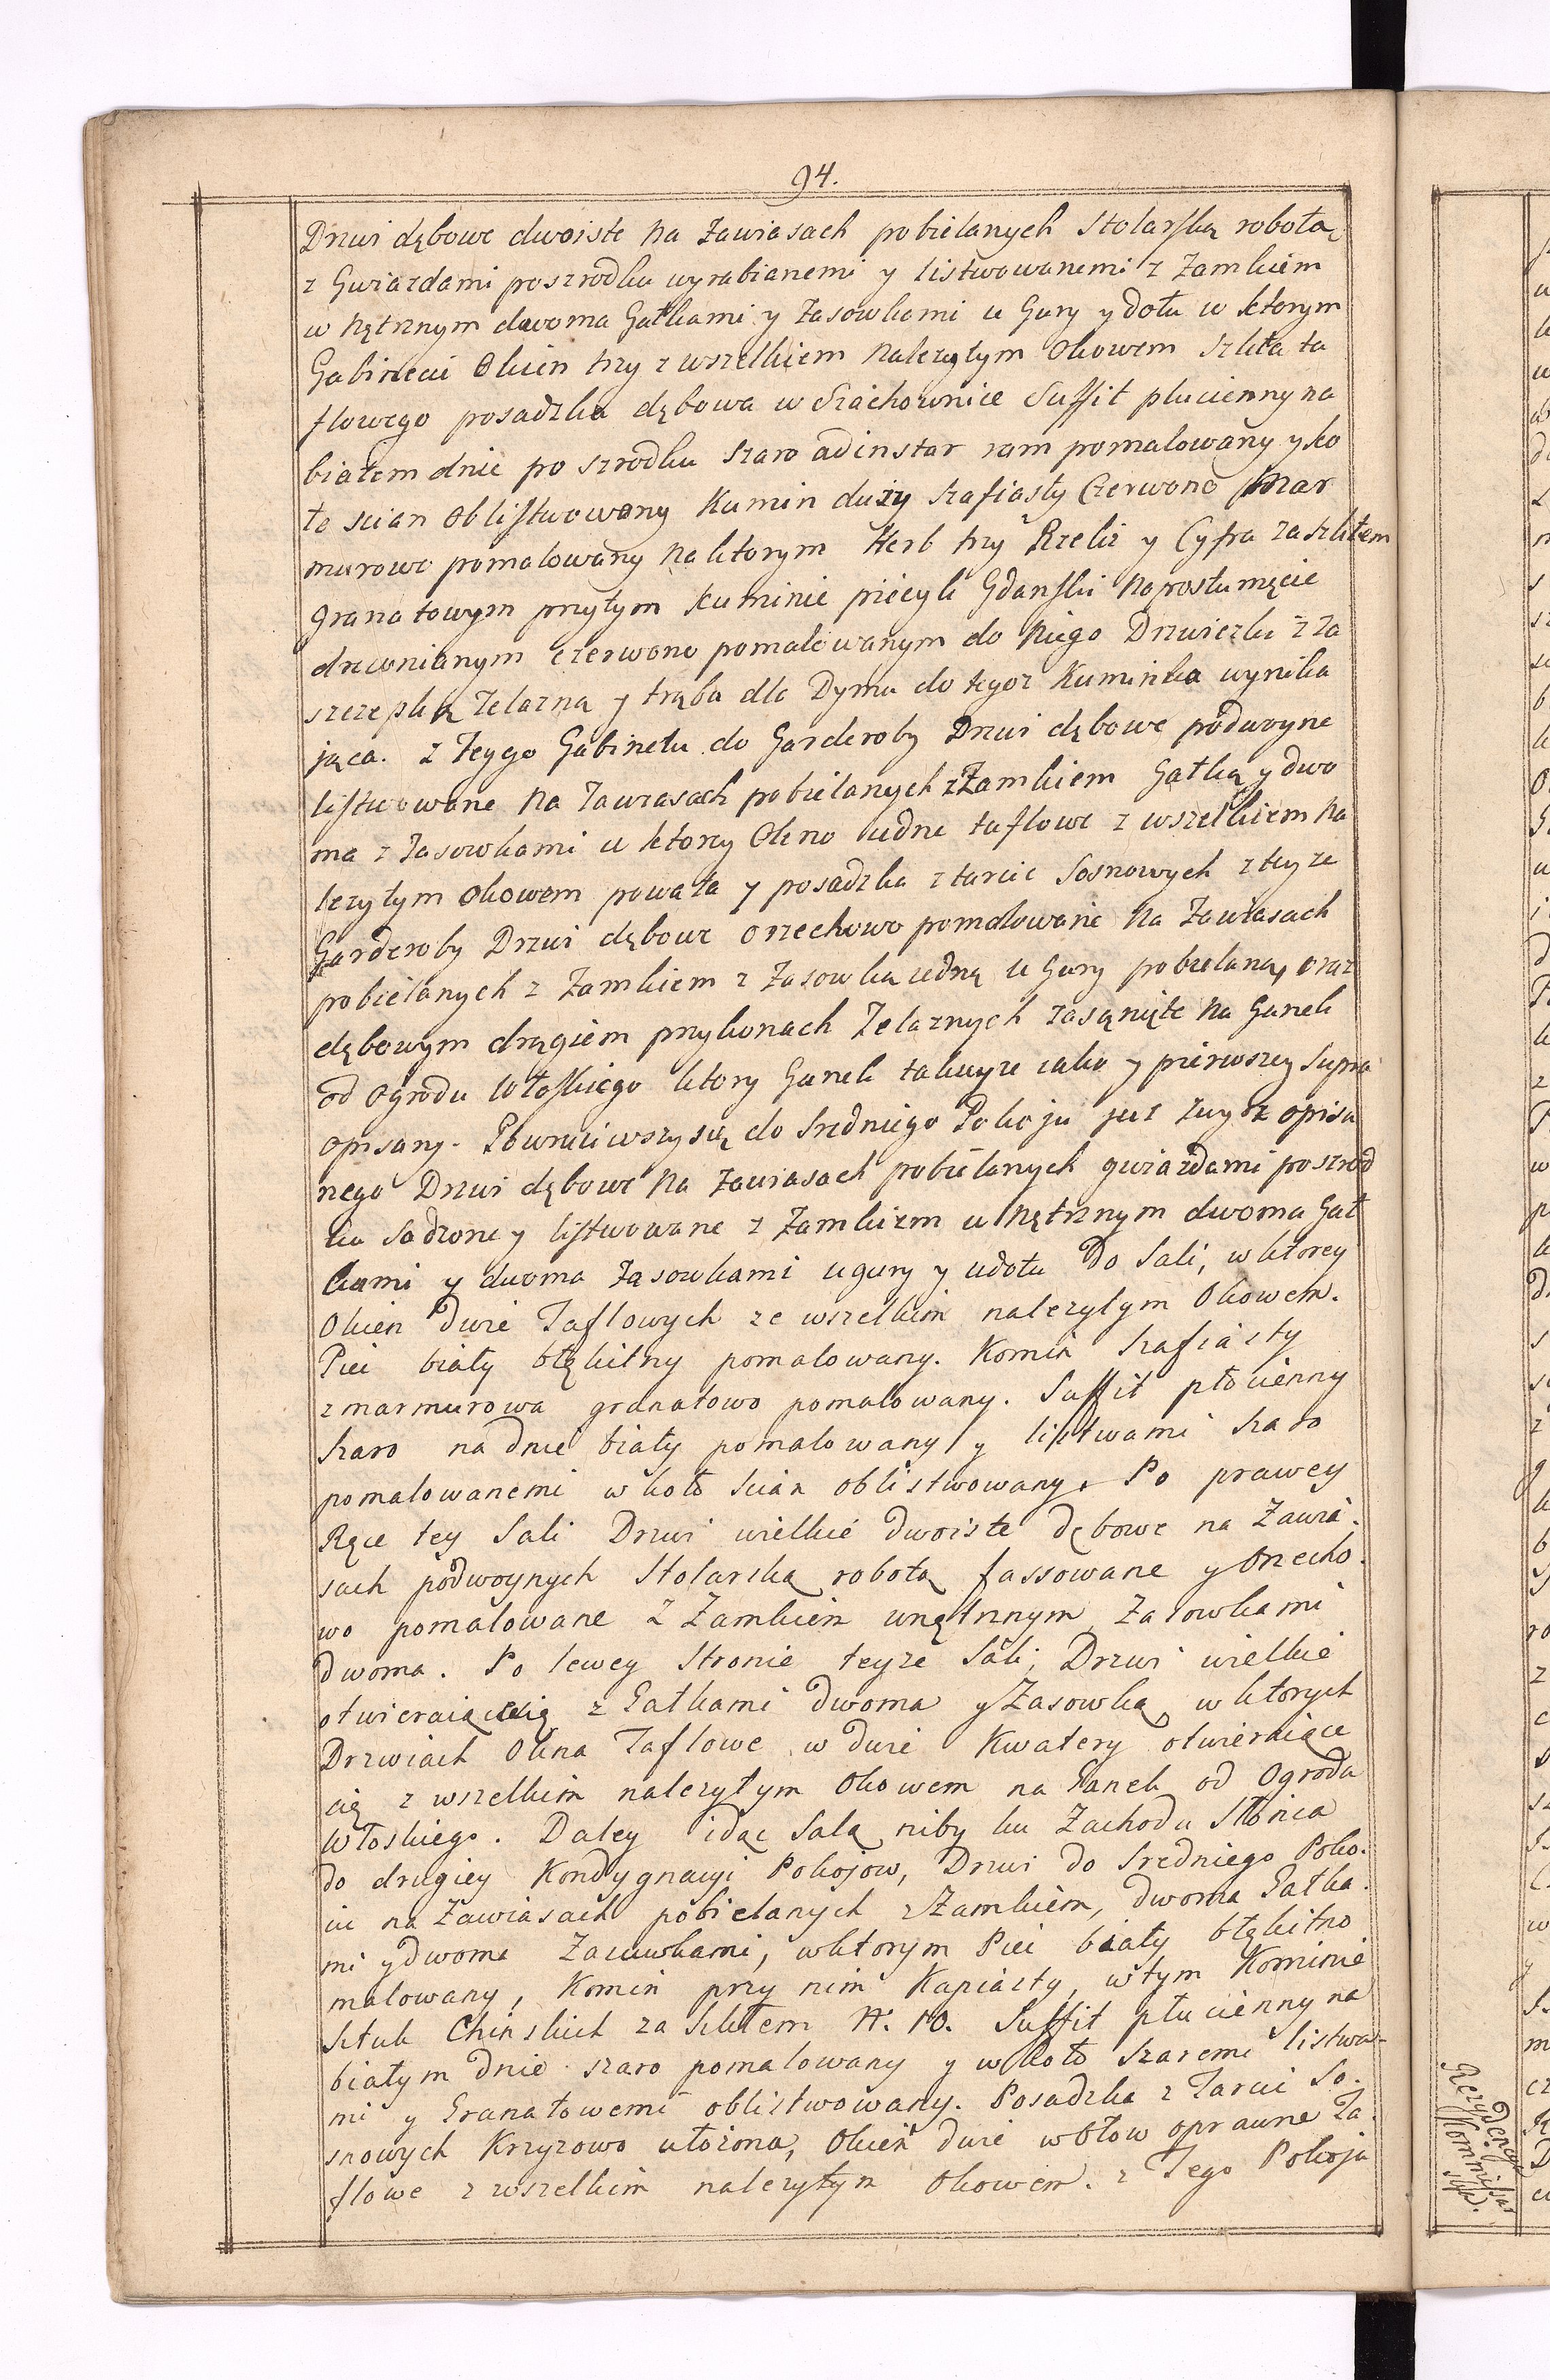 94.
Drzwi dębowe dwoiste na Zawiasach pobielanych Stolarską robotą
z Gwiazdami poszrodku wyrabianemi y listwowanemi z Zamkiem
w nętrznym dwoma Gałkami y Zasowkami u Gury y dołu w ktorym
Gabinecie Okien trzy z wszelkiem nalezytym Okowem Szkła ta
flowego posadzka dębowa w Szachownice Suffit plucienny na
białem dnie po szrodku Szaro adinstar ram pomalowany y ko
ło scian oblistwowany Kumin duży Szafiasty Czerwono Mar
murowo pomalowany na ktorym Herb trzy Rzeki y Cyfra za szkłem
granatowym przytym kuminie piecyk Gdanski na postumęcie
drewnianym czerwono pomalowanym do niego Drzwiczki z za
szczepką Zelazną y trąba dla Dymu do tegoz Kuminka wynika
jąca. Z teygo Gabinetu do Garderoby Drzwi dębowe podwoyne
listwowane na Zawiasach pobielanych z Zamkiem Gałką y dwo
ma z Zasowkami w ktorey Okno iedne taflowe z wszelkiem na
lezytym Okowem powała y posadzka z tarcic Sosnowych z teyze
Garderoby Drzwi dębowe orzechowo pomalowane na Zawiasach
pobielanych z Zamkiem z Zasowką iedną u Gury pobielaną, oraz
dębowym drągiem przy konach Zelaznych zasąnięte na Ganek
od Ogrodu Włoskiego ktory Ganek takuyze iako y pierwszey Supra
opisany. Powruciwszy się do Sredniego Pokoju juz zwysz opisa
nego Drzwi dębowe na Zawiasach pobielanych gwiazdami poszrod
ku Sadzone y listwowane z Zamkiem w nętrznym dwoma Gał
kami y dwoma Zasowkami u gury y u dołu Do Sali, w ktorey
Okien dwie Taflowych ze wszelkim nalezytym Okowem.
Piec biały błękitny pomalowany. Komin Szafiasty
z marmurowa granatowo pomalowany. Suffit płocienny
Szaro na dnie biały pomalowany y listwami Szaro
pomalowanemi w koło Scian oblistwowany. Po prawey
Ręce tey Sali Drzwi wielkie dwoiste dębowe na Zawia.
sach podwoynych Stolarską robotą fassowane y Orzecho.
wo pomalowane z Zamkiem wnętrznym Zasowkami
dwoma. Po lewey Stronie teyze Sali, Drzwi wielkie
otwieraiące się z Gałkami dwoma y Zasowką, w ktorych
Drzwiach Okna Taflowe w dwie Kwatery otwieraiące
się z wszelkim nalezytym Okowem na Ganek od Ogrodu
Włoskiego. Daley idąc Salą niby ku Zachodu Słońca
do drugiey Kondygnacyi Pokojow, Drzwi do Sredniego Poko.
iu na Zawiasach pobielanych z Zamkiem, dwoma Gałka.
mi y dwoma Zasuwkami, w ktorym Piec biały błękitno
malowany, Komin przy nim Kapiasty, w tym Kominie
Sztuk Chinskich za Szkłem N. 10. Suffit płucienny na
białym dnie szaro pomalowany y w koło Szaremi listwa-
mi y Granatowemi oblistwowany. Posadzka z Tarcic So.
snowych Krzyzowo ułożona, Okien dwie w ołow oprawne Ta.
flowe z wszelkim nalezytym Okowem. z Tego Pokoju
Rezydencya
Kommissar
ska.